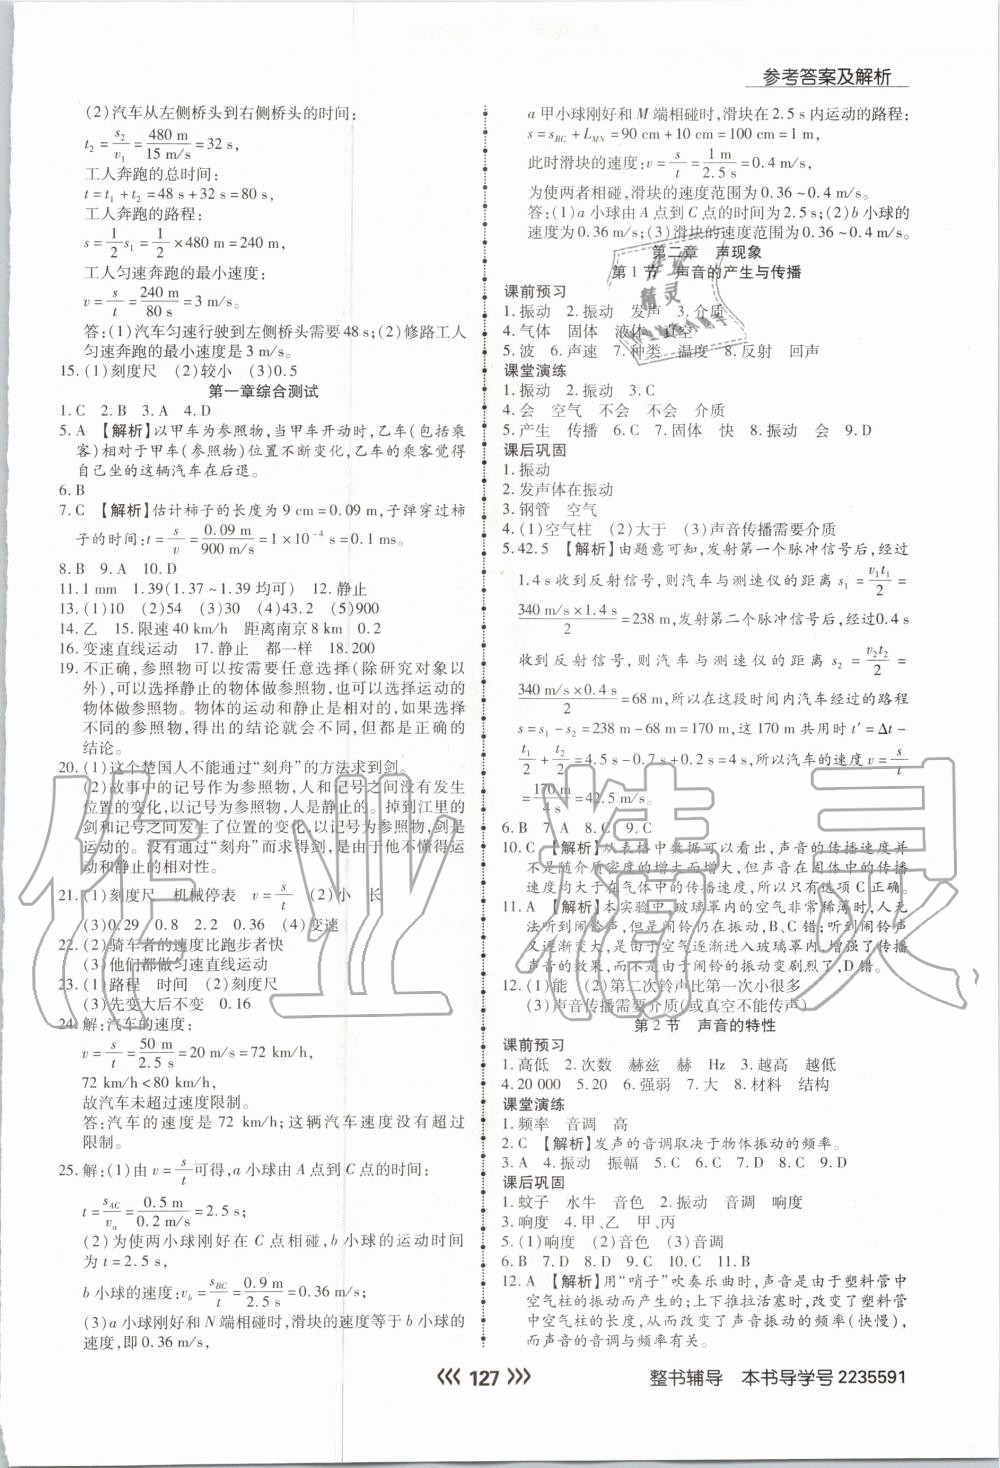 参考答案及解析
(2)汽车从左侧桥头到右侧桥头的时间:
t₂=s₂/v₁=480 m/15 m/s=32 s,
工人奔跑的总时间:
t=t₁+t₂=48 s+32 s=80 s,
工人奔跑的路程:
s=1/2 s₁=1/2×480 m=240 m,
工人匀速奔跑的最小速度:
v=s/t=240 m/80 s=3 m/s。
答:(1)汽车匀速行驶到左侧桥头需要 48 s;(2)修路工人
匀速奔跑的最小速度是 3 m/s。
15.(1)刻度尺 (2)较小 (3)0.5
第一章综合测试
1.C 2.B 3.A 4.D
5.A 【解析】以甲车为参照物,当甲车开动时,乙车(包括乘
客)相对于甲车(参照物)位置不断变化,乙车的乘客觉得
自己坐的这辆汽车在后退。
6.B
7.C 【解析】估计柿子的长度为 9 cm=0.09 m,子弹穿过柿
子的时间:t=s/v=0.09 m/900 m/s=1×10⁻⁴ s=0.1 ms。
8.B 9.A 10.D
11.1 mm 1.39(1.37~1.39 均可) 12.静止
13.(1)10 (2)54 (3)30 (4)43.2 (5)900
14.乙 15.限速 40 km/h 距离南京 8 km 0.2
16.变速直线运动 17.静止 都一样 18.200
19.不正确,参照物可以按需要任意选择(除研究对象以
外),可以选择静止的物体做参照物,也可以选择运动的
物体做参照物。物体的运动和静止是相对的,如果选择
不同的参照物,得出的结论就会不同,但都是正确的
结论。
20.(1)这个楚国人不能通过“刻舟”的方法求到剑。
(2)故事中的记号作为参照物,人和记号之间没有发生
位置的变化,以记号为参照物,人是静止的。掉到江里的
剑和记号间发生了位置的变化,以记号为参照物,剑是
运动的。没有通过“刻舟”而求得剑,是由于他不懂得运
动和静止的相对性。
21.(1)刻度尺 机械停表 v=s/t (2)小 长
(3)0.29 0.8 2.2 0.36 (4)变速
22.(2)骑车者的速度比跑步者快
(3)他们都做匀速直线运动
23.(1)路程 时间 (2)刻度尺
(3)先变大后不变 0.16
24.解:汽车的速度:
v=s/t=50 m/2.5 s=20 m/s=72 km/h,
72 km/h<80 km/h,
故汽车未超过速度限制。
答:汽车的速度是 72 km/h;这辆汽车速度没有超过
限制。
25.解:(1)由 v=s/t可得,a 小球由 A 点到 C 点的时间:
t=s_AC/v_a=0.5 m/0.2 m/s=2.5 s;
(2)为使两小球刚好在 C 点相碰,b 小球的运动时间
为 t=2.5 s,
b 小球的速度:v_b=s_BC/t=0.9 m/2.5 s=0.36 m/s;
(3)a 小球刚好和 N 端相碰时,滑块的速度等于 b 小球的
速度,即 0.36 m/s,
a 甲小球刚好和 M 端相碰时,滑块在 2.5 s 内运动的路程:
s=s_BC+L_MN=90 cm+10 cm=100 cm=1 m,
此时滑块的速度:v=s/t=1 m/2.5 s=0.4 m/s,
为使两者相碰,滑块的速度范围为 0.36~0.4 m/s。
答:(1)a 小球由 A 点到 C 点的时间为 2.5 s;(2)b 小球的
速度为 0.36 m/s;(3)滑块的速度范围为 0.36~0.4 m/s。
第二章 声现象
第 1 节 声音的产生与传播
课前预习
1.振动 2.振动 发声 3.介质
4.气体 固体 液体 真空
5.波 6.声速 7.种类 温度 8.反射 回声
课堂演练
1.振动 2.振动 3.C
4.会 空气 不会 不会 介质
5.产生 传播 6.C 7.固体 快 8.振动 会 9.D
课后巩固
1.振动
2.发声体在振动
3.钢管 空气
4.(1)空气柱 (2)大于 (3)声音传播需要介质
5.42.5 【解析】由题意可知,发射第一个脉冲信号后,经过
1.4 s 收到反射信号,则汽车与测速仪的距离 s₁=v₁t₁/2=
340 m/s×1.4 s/2=238 m,发射第二个脉冲信号后,经过0.4 s
收到反射信号,则汽车与测速仪的距离 s₂=v₂t₂/2=
340 m/s×0.4 s/2=68 m,所以在这段时间内汽车经过的路程
s=s₁-s₂=238 m-68 m=170 m,这 170 m 共用时 t′=Δt-
t₁/2+t₂/2=4.5 s-0.7 s+0.2 s=4 s,所以汽车的速度 v=s/t
=170 m/4 s=42.5 m/s。
6.B 7.A 8.C 9.C
10.C 【解析】从表格中数据可以看出,声音的传播速度并
不是随介质密度的增大而增大,但声音在固体中的传播
速度均大于在气体中的传播速度,所以只有选项 C 正确。
11.A 【解析】本实验中,玻璃罩内的空气非常稀薄时,人无
法听到铃声,但是闹铃仍在振动,B、C 错;听到闹铃声
又逐渐变大,是由于空气逐渐进入玻璃罩内,增强了传播
声音的效果,而不是由于闹铃的振动变剧烈了,D 错。
12.(1)能 (2)第二次铃声比第一次小很多
(3)声音传播需要介质(或真空不能传声)
第 2 节 声音的特性
课前预习
1.高低 2.次数 赫兹 赫 Hz 3.越高 越低
4.20 000 5.20 6.强弱 7.大 8.材料 结构
课堂演练
1.频率 音调 高
2.C 【解析】发声的音调取决于物体振动的频率。
3.A 4.振动 振幅 5.C 6.D 7.D 8.C 9.D
课后巩固
1.蚊子 水牛 音色 2.振动 音调 响度
3.响度 4.甲、乙 甲、丙
5.(1)响度 (2)音色 (3)音调
6.B 7.D 8.B 9.D 10.C 11.B
12.A 【解析】用“哨子”吹奏乐曲时,声音是由于塑料管中
空气柱的振动而产生的;上下推拉活塞时,改变了塑料管
中空气柱的长短,从而改变了空气柱振动的频率(快慢),
而声音的音调与频率有关。
《《 127 》》
整书辅导 本书导学号 2235591
作业精灵